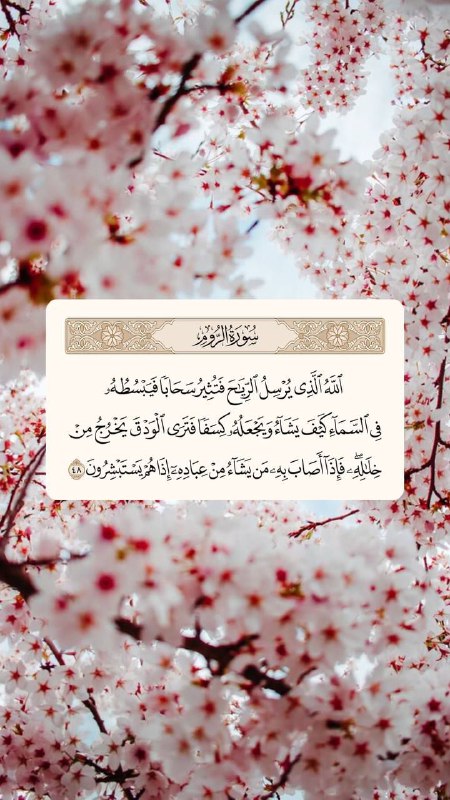 سُورَةُ الرُّومِ
اللَّهُ الَّذِي يُرْسِلُ الرِّيَاحَ فَتُثِيرُ سَحَابًا فَيَبْسُطُهُۥ
فِي السَّمَآءِ كَيْفَ يَشَآءُ وَيَجْعَلُهُۥ كِسَفًا فَتَرَى الْوَدْقَ يَخْرُجُ مِنْ
خِلَٰلِهِۦۖ فَإِذَآ أَصَابَ بِهِۦ مَن يَشَآءُ مِنْ عِبَادِهِۦٓ إِذَا هُمْ يَسْتَبْشِرُونَ ٤٨